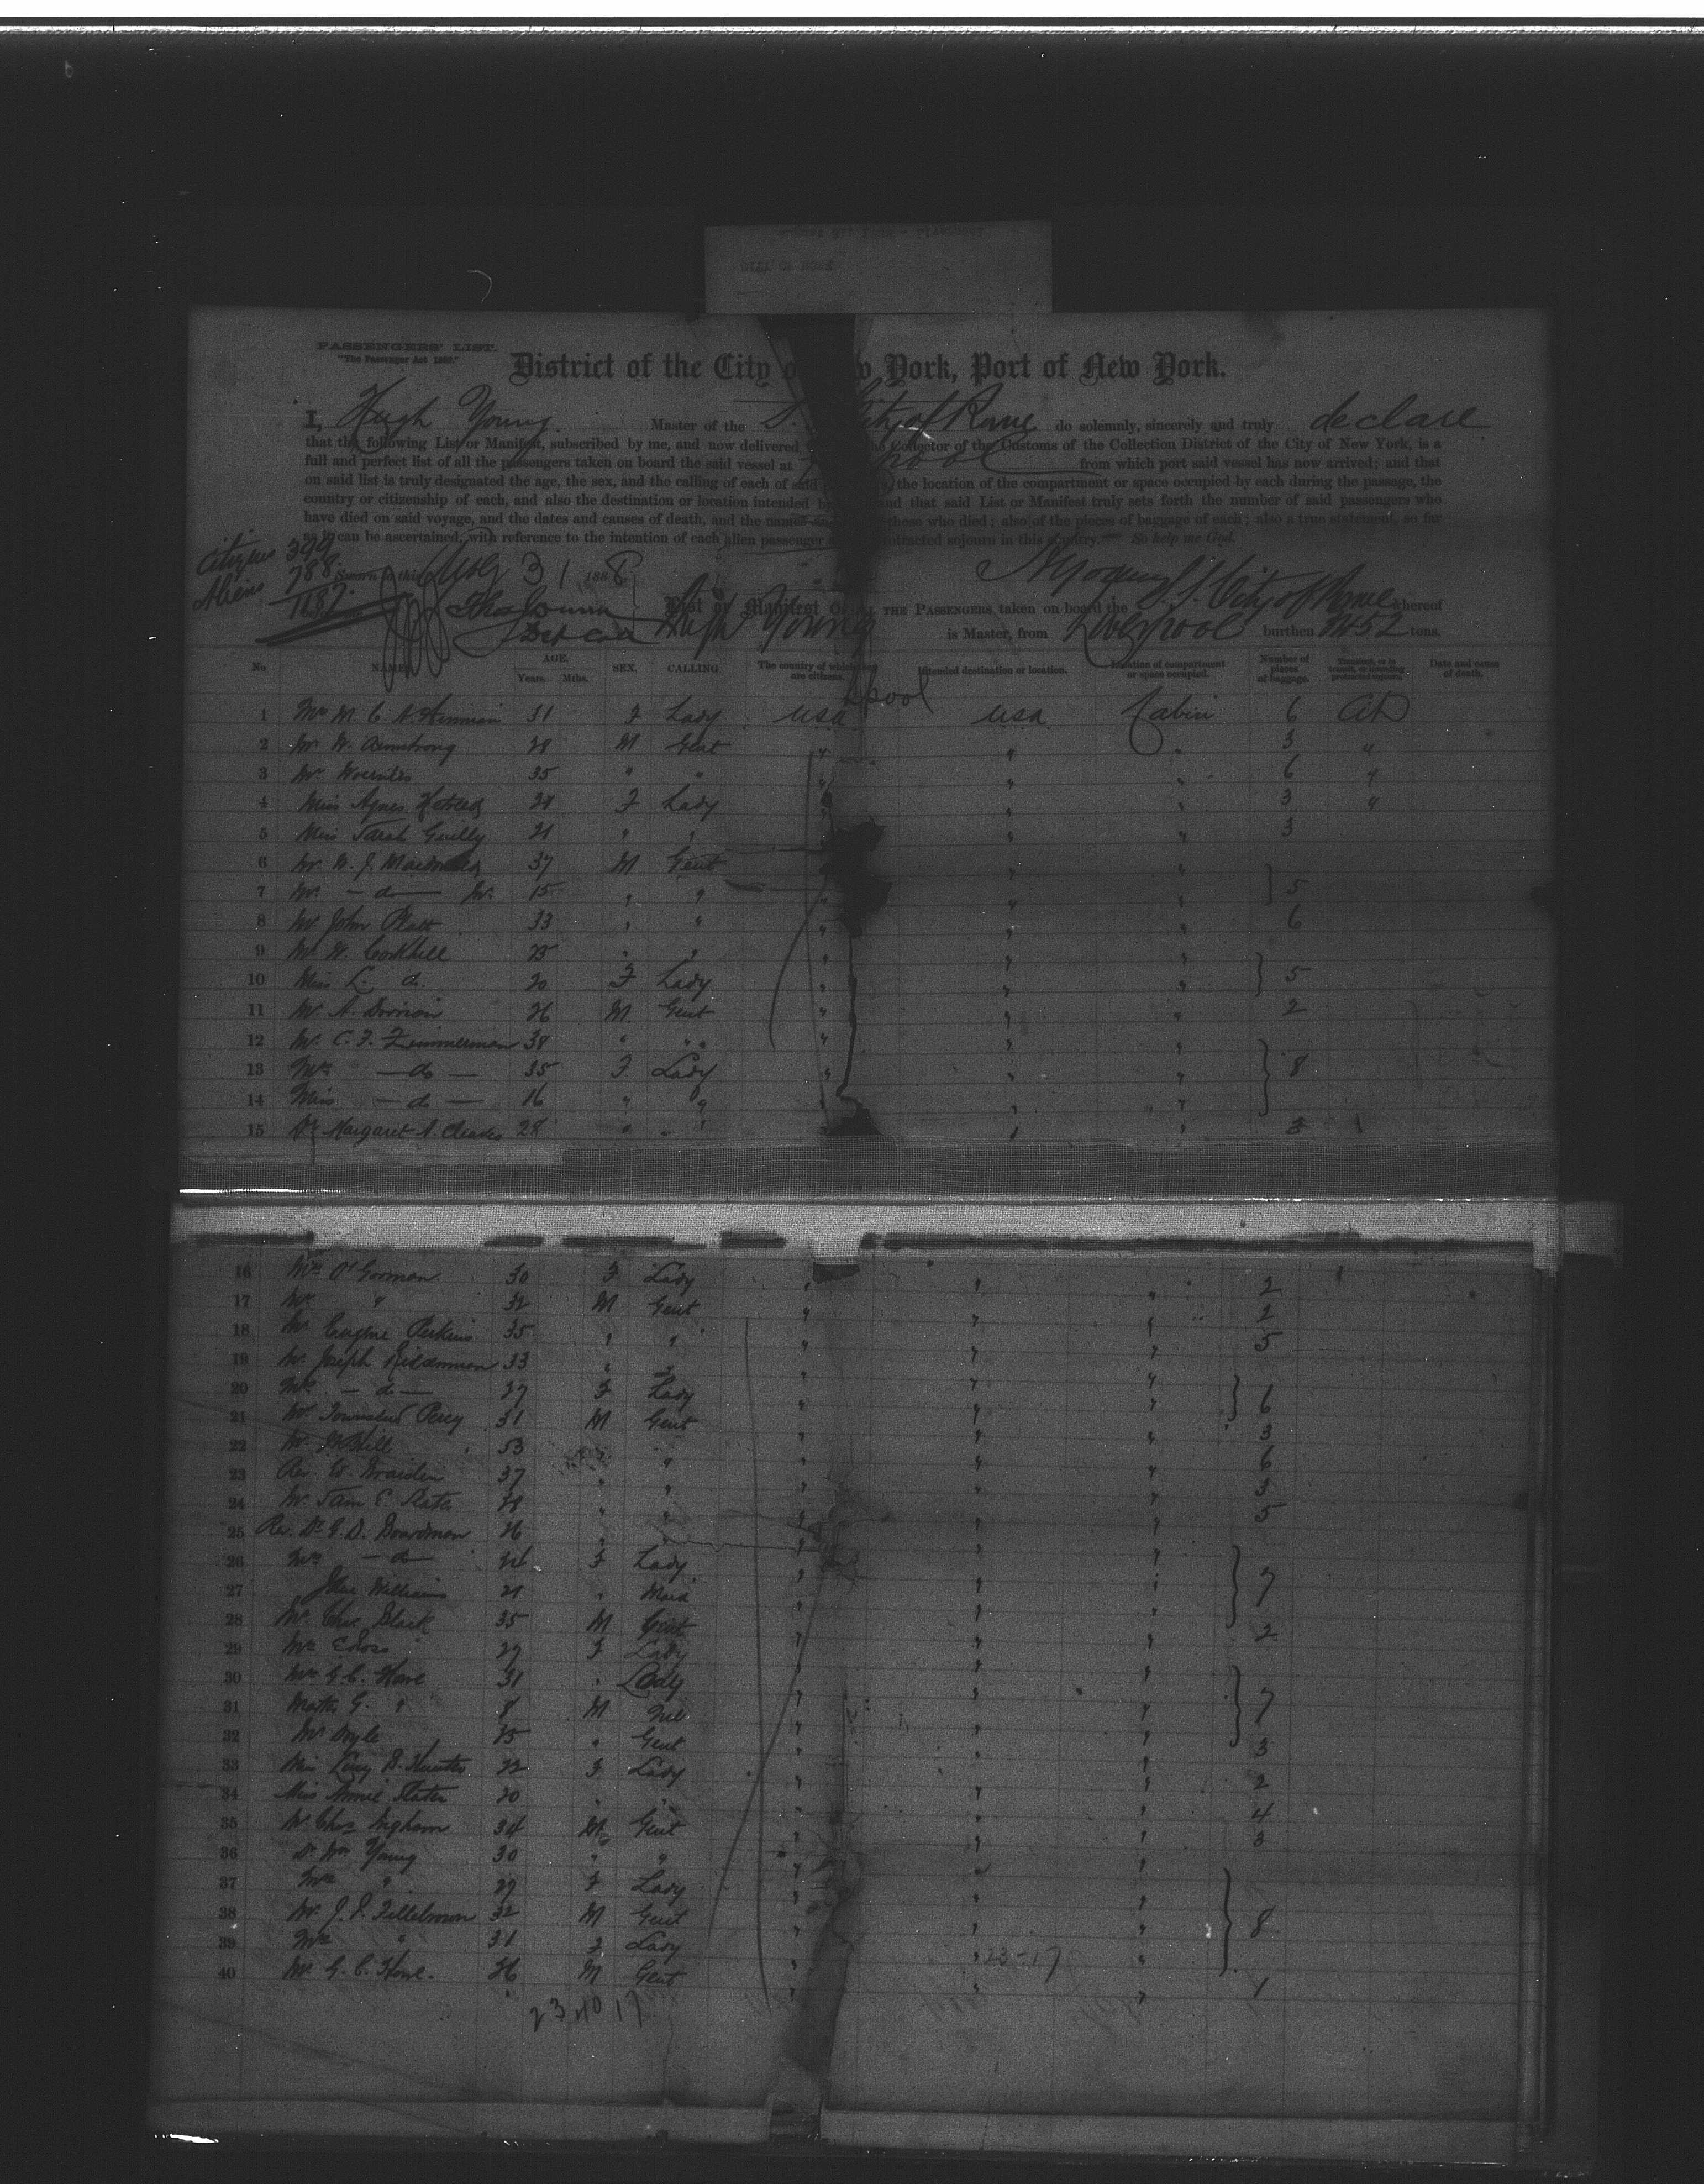 PASSENGERS' LIST.
"The Passenger Act 1882."
District of the City of New York, Port of New York.
I, Hugh Young Master of the S. S. City of Rome do solemnly, sincerely and truly declare
that the following List or Manifest, subscribed by me, and now delivered the Collector of the Customs of the Collection District of the City of New York, is a
full and perfect list of all the passengers taken on board the said vessel at from which port said vessel has now arrived; and that
on said list is truly designated the age, the sex, and the calling of each of said the location of the compartment or space occupied by each during the passage, the
country or citizenship of each, and also the destination or location intended and that said List or Manifest truly sets forth the number of said passengers who
have died on said voyage, and the dates and causes of death, and the names those who died; also of the pieces of baggage of each; also a true statement, so far
as it can be ascertained, with reference to the intention of each alien passenger protracted sojourn in this country. So help me God.
Citizens 399
Aliens 788
1187
Sworn to this Aug 31 1888
HYoung S.S. City of Rome whereof
List or Manifest OF ALL THE PASSENGERS taken on board the
Hugh Young is Master, from Liverpool burthen 3452 tons.
No NAMES AGE. Years. Mths. SEX. CALLING The country of which they are citizens. Intended destination or location. Location of compartment or space occupied. Number of pieces of baggage. Date and cause of death.
1 31 F Lady USA USA Cabin 6
2 Mr W. Armstrong 28 M Gent " " " 3 "
3 Mr 35 " " " " " 6 "
4 Miss Agnes F Lady " " " 3 "
5 Miss Sarah Guilly 21 " " " " " 3
6 Mr W. J. Macdonald 37 M Gent " " "
7 Mr — do — Jr. 15 " " " " " 5
8 Mr John Platt 33 " " " " " 6
9 Mr W. Corkhill 25 " " " " "
10 Miss L. do. 20 F Lady " " " 5
11 Mr A. Dorrian 26 M Gent " " " 2
12 Mr C. F. Zimmerman 38 " " " " "
13 Mrs — do — 35 F Lady " " " 8
14 Miss — do — 16 " " " " "
15 Dr Margaret A. Cleaves 28 " " " " " 3
16 Mrs O'Gorman 30 F Lady " " " 2
17 Mr " 32 M Gent " " " 2
18 Mr Eugene Perkins 35 " " " " " 5
19 Mr Joseph 33 " " " " "
20 Mrs — do — 27 F Lady " " " 6
21 Mr Townsend Percy 31 M Gent " " " 3
22 Mr Hill 53 " " " " 6
23 Rev W. 37 " " " " " 3
24 Mr Sam E. Slater 28 " " " " " 5
25 Rev. Dr G. D. Boardman 26 " " " " "
26 Mrs — do — 24 F Lady " " " 7
27 Williams 21 " Maid " " "
28 Mr Chas. Black 35 M Gent " " " 2
29 27 F Lady " " "
30 Mrs G. C. Howe 31 " Lady " " "
31 Mastr G. " 8 M Nil " " " 7
32 Mr Doyle " Gent " " " 3
33 Miss Lucy B. Hunter 22 F Lady " " " 2
34 Miss Annie Slater 20 " " " " " 4
35 Mr Chas Ingham 34 M Gent " " " 3
36 Dr Wm Young 30 " " " " "
37 Mrs " 29 F Lady " " "
38 Mr J. P. Fillebrown 32 M Gent " " " 8
39 Mrs " 31 F Lady " " "
40 Mr G. C. Howe. 26 M Gent " " " 1
23-17
23 40 17